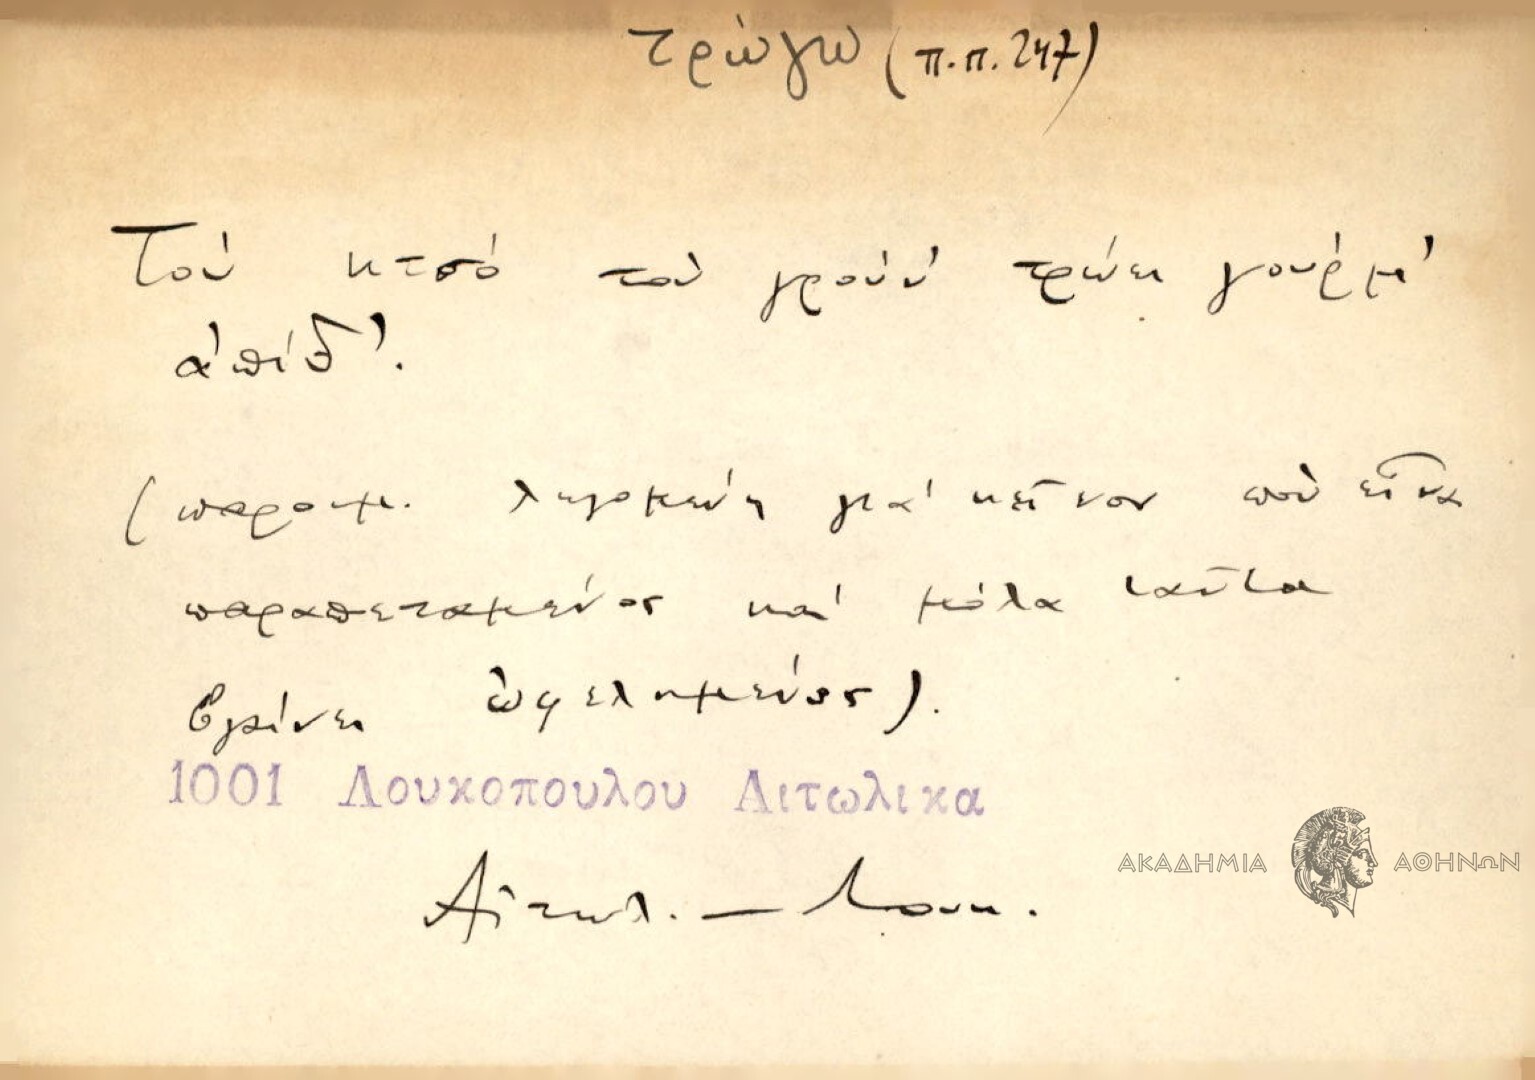 τρώγω (π.π. 247)
Τού κτσό τού γρούν' τρώει γούρμ'
ἀπίδ'.
(παροιμ. λεγομένη γιά κεῖνον πού εἶνα
παραπεταμένος καί μόλα ταῦτα
βγαίνει ὠφελημένος).
1001 Λουκοπουλου Αιτωλικα
Αἰτωλ. — Λουκ.
ΑΚΑΔΗΜΙΑ ΑΘΗΝΩΝ